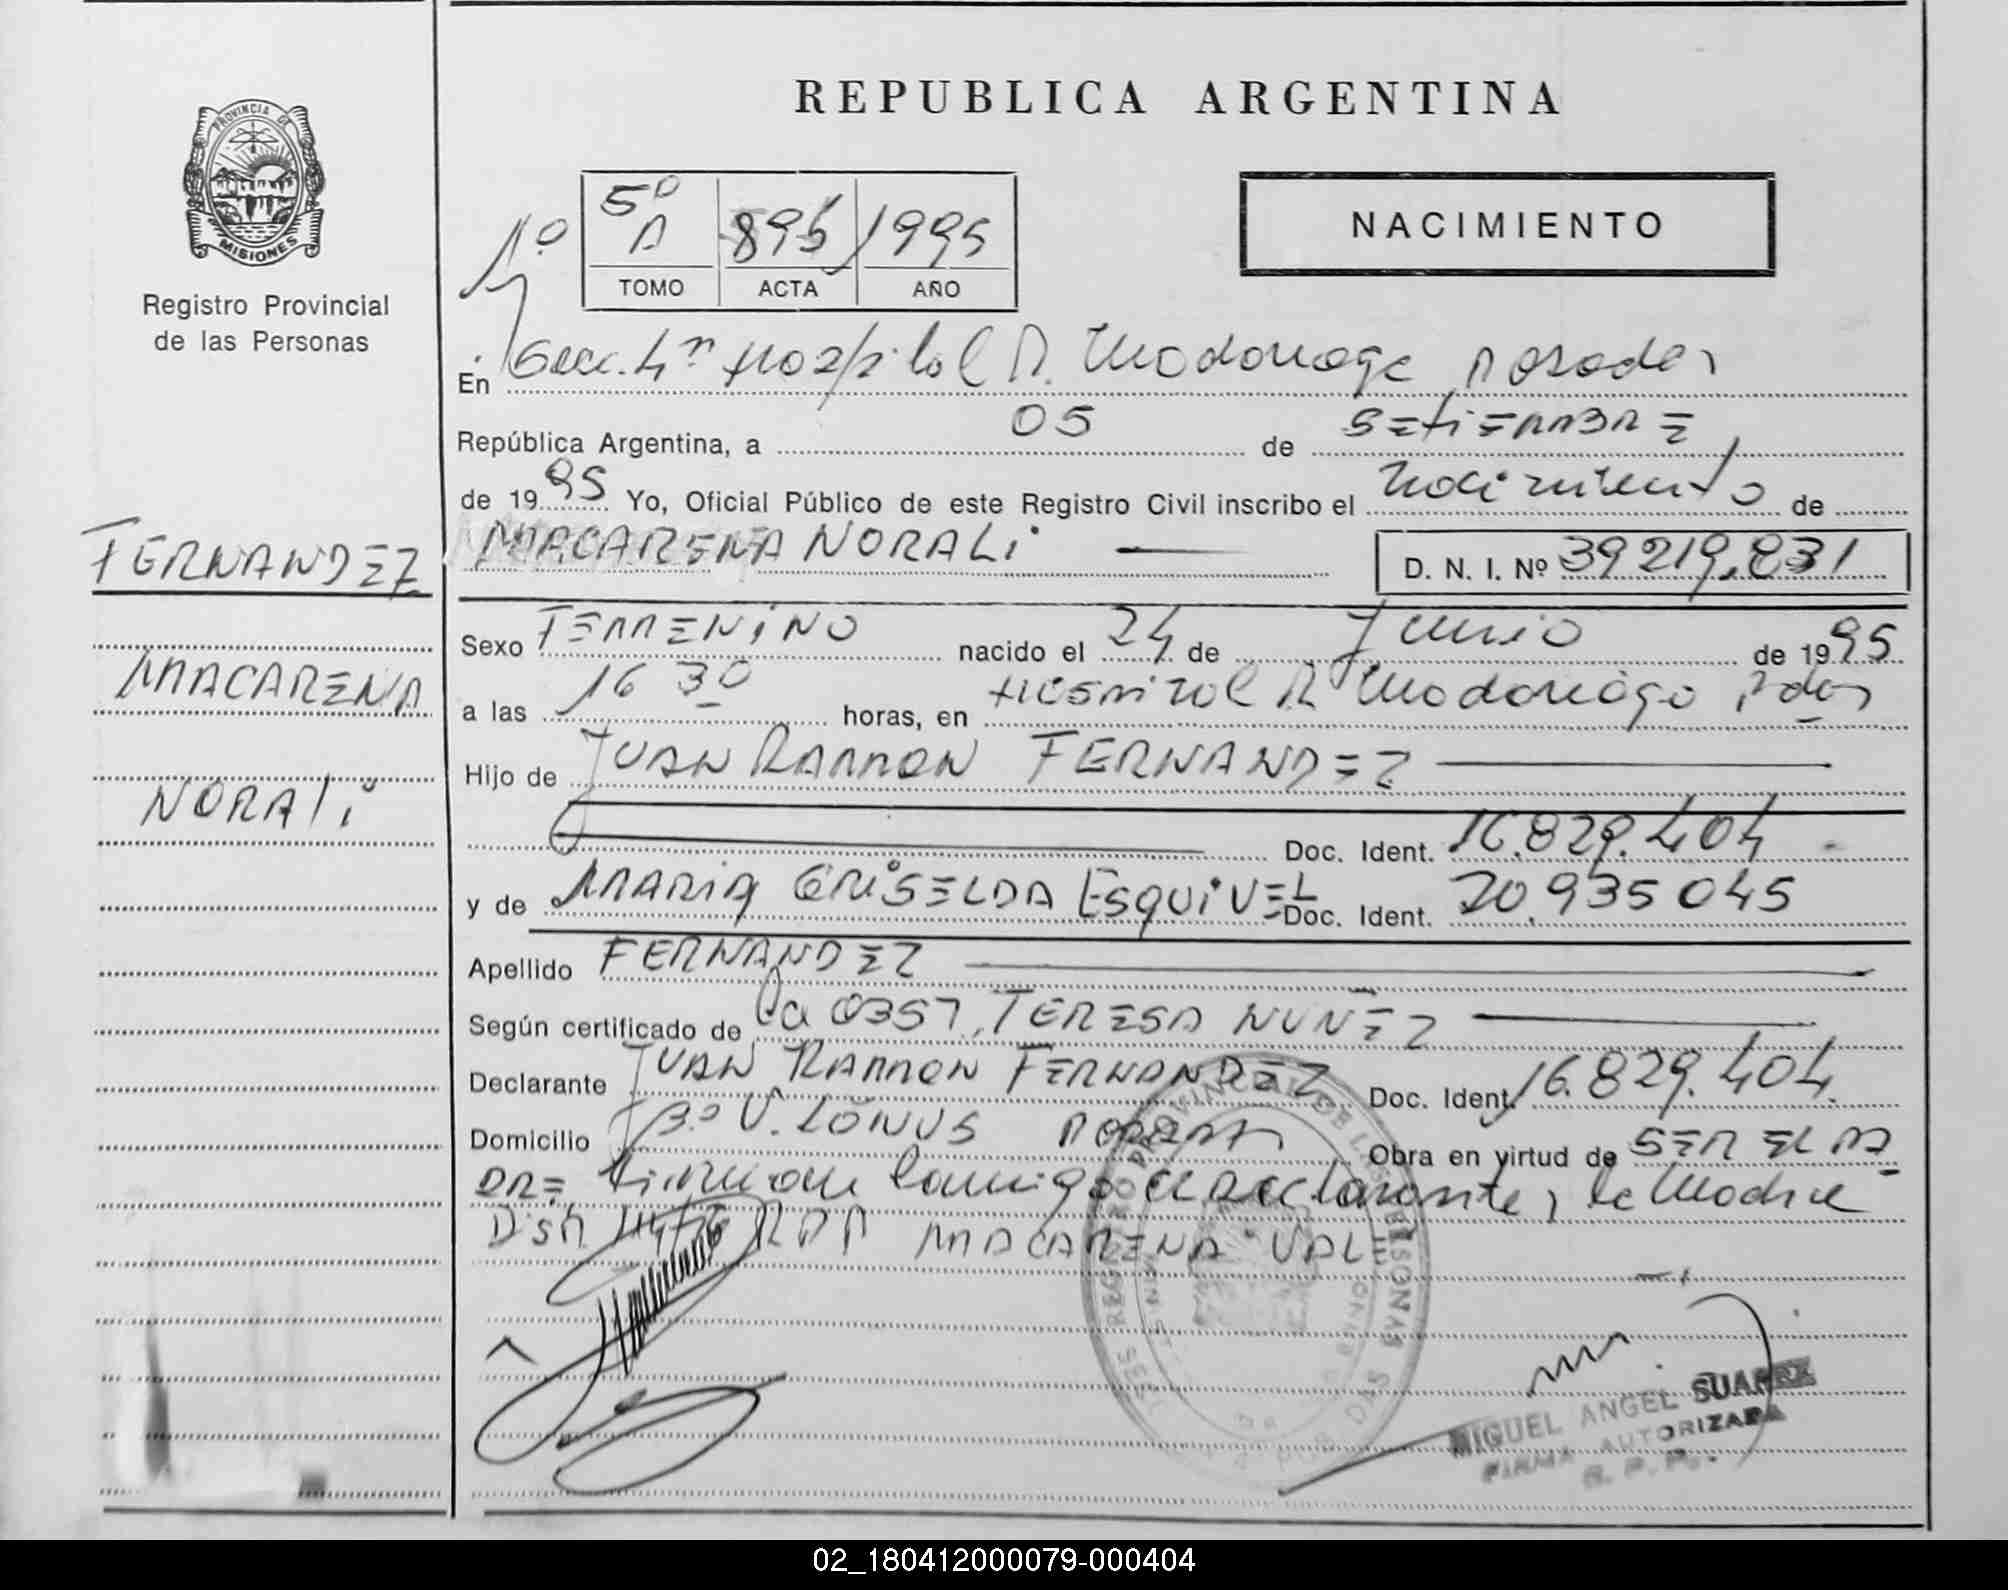 PROVINCIA DE
MISIONES
Registro Provincial
de las Personas
FERNANDEZ
MACARENA
NORALi
REPUBLICA ARGENTINA
NACIMIENTO
1º
5º A 896 1995
TOMO ACTA AÑO
En Secc. 4ª Hospital R. Madariaga Posadas
República Argentina, a 05 de SETIEMBRE
de 1995 Yo, Oficial Público de este Registro Civil inscribo el nacimiento de
MACARENA NORALi D. N. I. Nº 39219.831
Sexo FEMENiNO nacido el 24 de Junio de 1995
a las 16 30 horas, en Hospital R Madariaga Pdas
Hijo de JUAN RAMON FERNANDEZ
Doc. Ident. 16.829.404
y de MARIA GRiSELDA ESQUiVEL Doc. Ident. 20.935045
Apellido FERNANDEZ
Según certificado de la 0357, TERESA NUÑEZ
Declarante JUAN RAMON FERNANDEZ Doc. Ident. 16.829.404.
Domicilio Bº Obra en virtud de SER EL PA
DRE Firman conmigo el declarante, la Madre
MACARENA VALE
REGISTRO PROVINCIAL DE LAS PERSONAS
MIGUEL ANGEL SUAREZ
FIRMA AUTORIZADA
R. P. P.
02_180412000079-000404